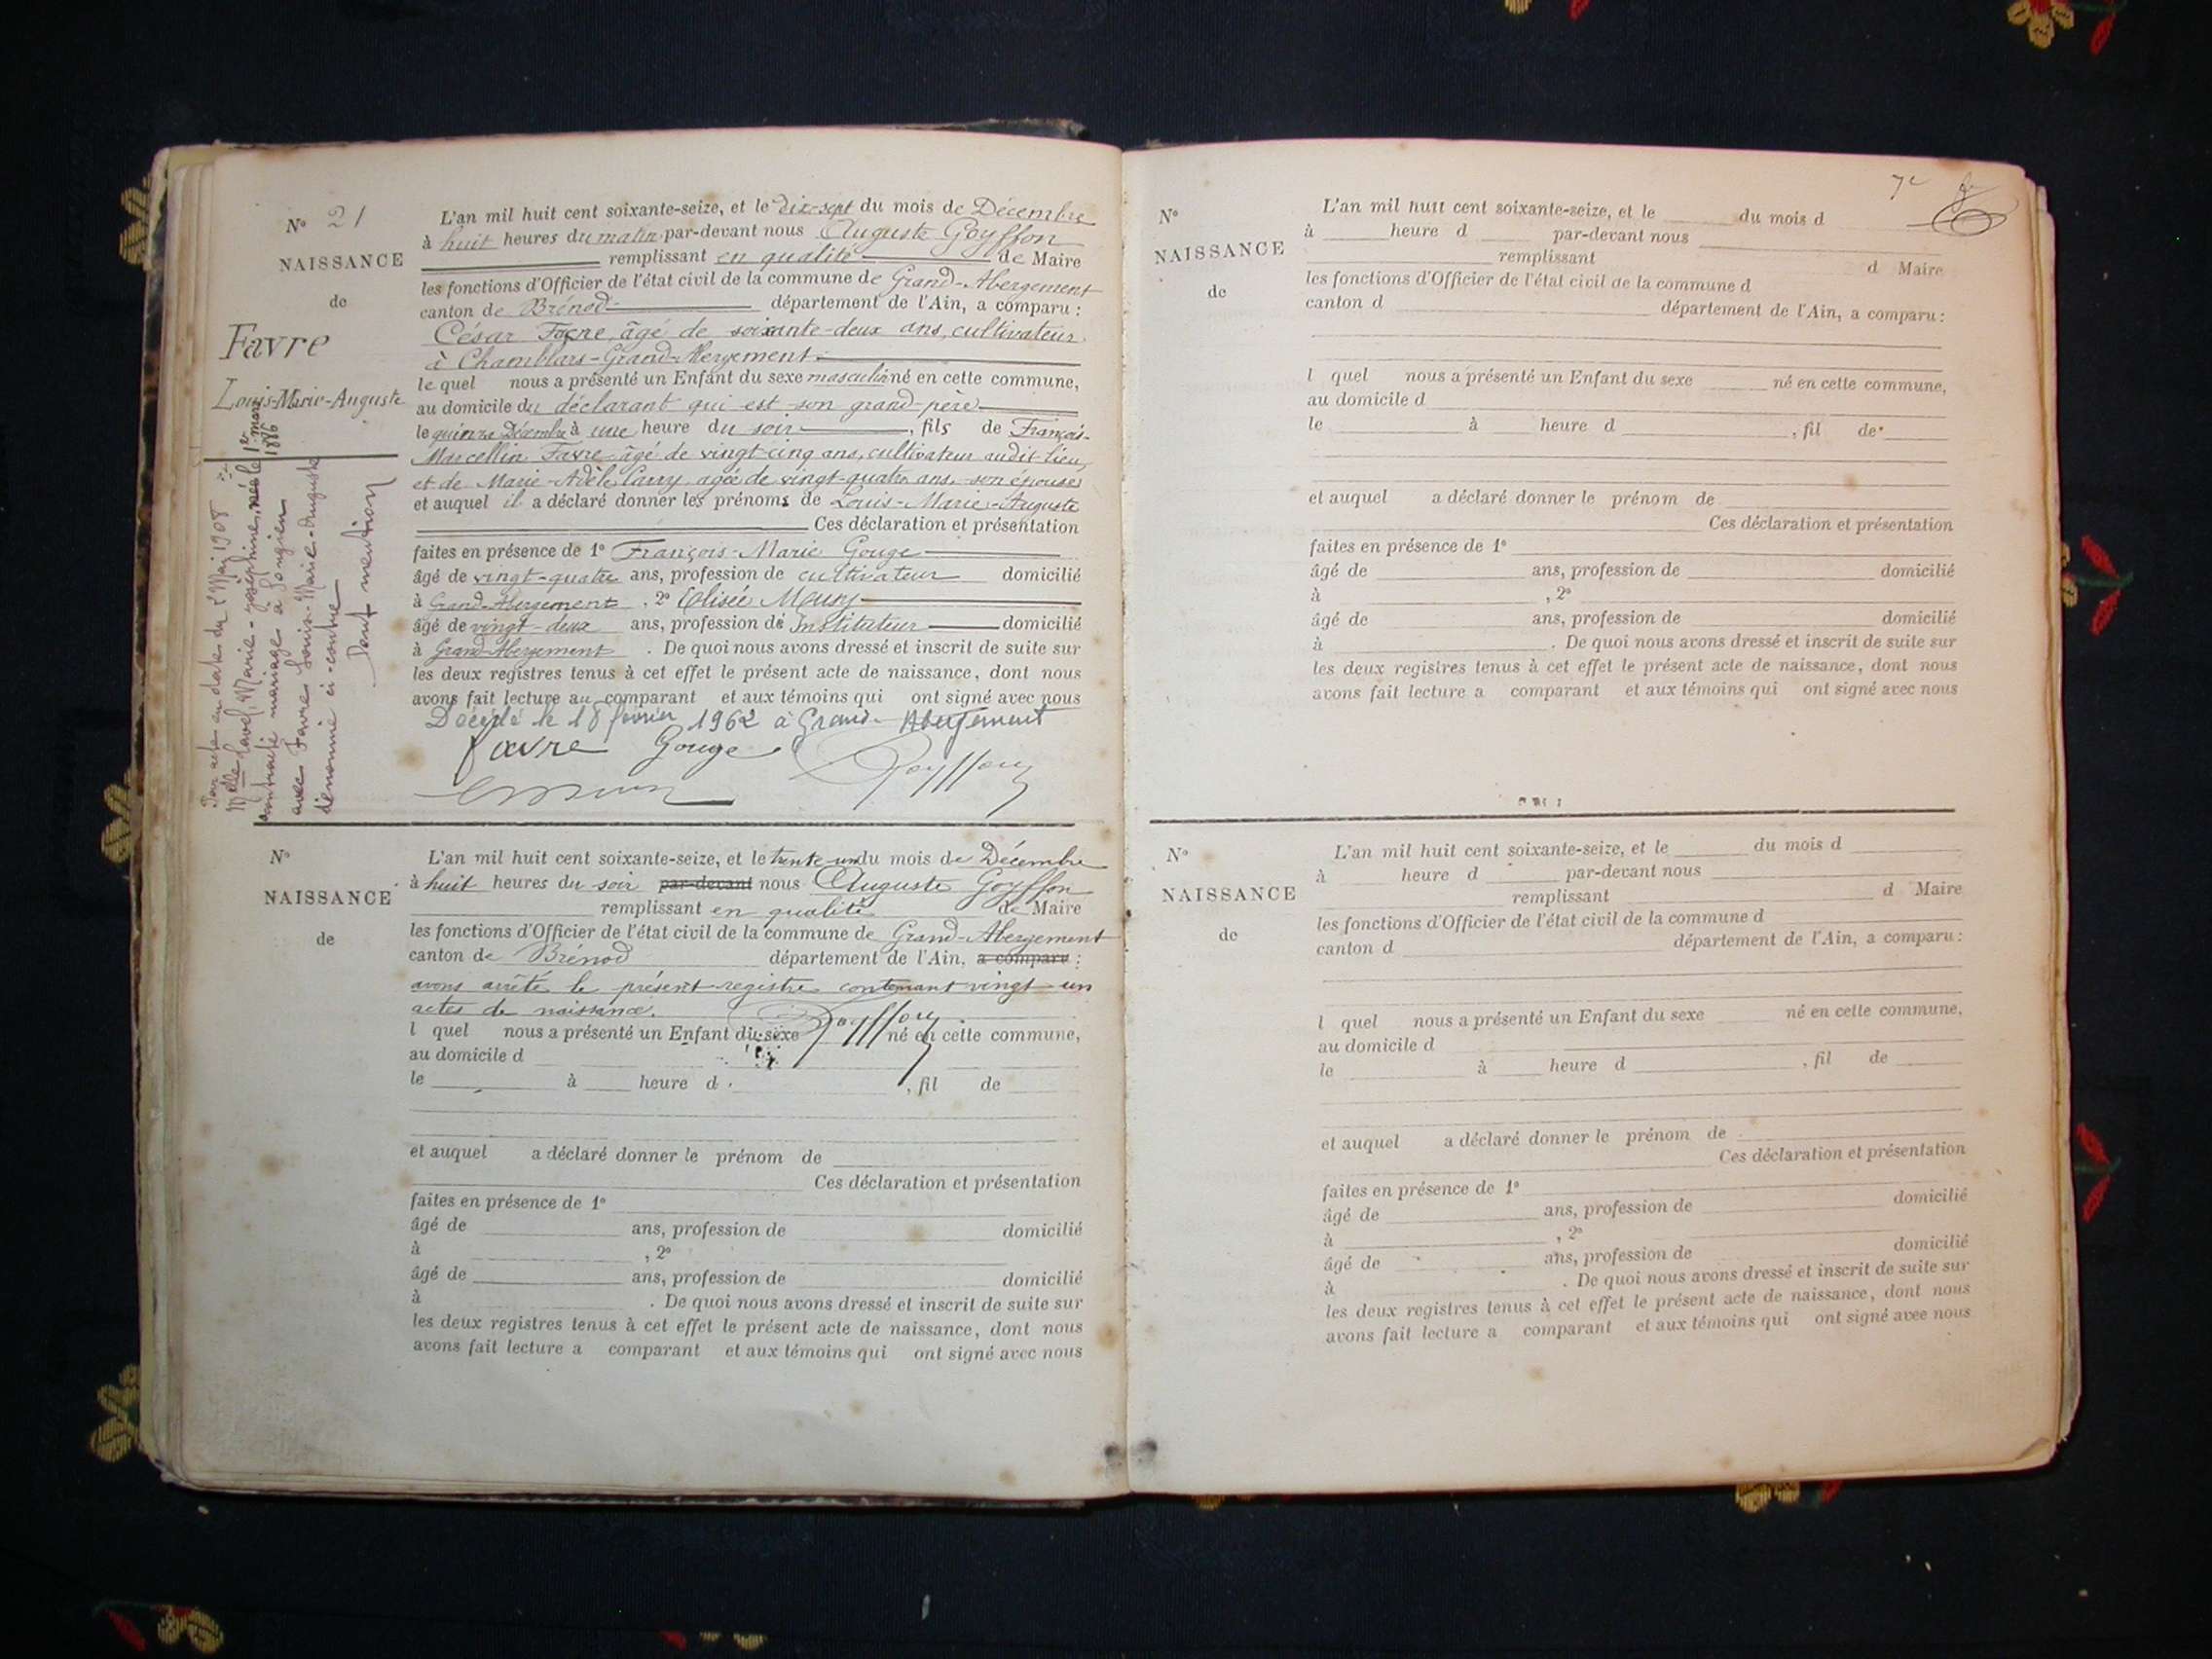 N° 21
NAISSANCE
de
Favre
Louis-Marie-Auguste
L'an mil huit cent soixante-seize, et le dix-sept du mois de Décembre
à huit heures du matin par-devant nous Auguste Goyffon
remplissant en qualité de Maire
les fonctions d'Officier de l'état civil de la commune de Grand-Abergement
canton de Brénod département de l'Ain, a comparu :
César Favre, âgé de soixante-deux ans, cultivateur
à Chamblars-Grand-Abergement
le quel nous a présenté un Enfant du sexe masculin né en cette commune,
au domicile du déclarant qui est son grand-père
le quinze Décembre à une heure du soir, fils de François-
Marcellin Favre âgé de vingt-cinq ans, cultivateur audit-lieu,
et de Marie-Adèle Carry, agée de vingt-quatre ans, son épouse
et auquel il a déclaré donner les prénoms de Louis-Marie-Auguste
Ces déclaration et présentation
faites en présence de 1° François-Marie Gouge
âgé de vingt-quatre ans, profession de cultivateur domicilié
à Grand-Abergement, 2° Elisée
âgé de vingt-deux ans, profession de Instituteur domicilié
à Grand-Abergement. De quoi nous avons dressé et inscrit de suite sur
les deux registres tenus à cet effet le présent acte de naissance, dont nous
avons fait lecture au comparant et aux témoins qui ont signé avec nous
Décédé le 18 février 1962 à Grand-Abergement
favre Gouge Goyffon
Par acte en date du 2 Mai 1908
Melle Marie-Joséphine, née le 1er mars 1886
a contracté mariage à Songieu
avec Favre Louis-Marie-Auguste
dénommé ci-contre
Dont mention
N°
NAISSANCE
de
L'an mil huit cent soixante-seize, et le trente-un du mois de Décembre
à huit heures du soir par-devant nous Auguste Goyffon
remplissant en qualité de Maire
les fonctions d'Officier de l'état civil de la commune de Grand-Abergement
canton de Brénod département de l'Ain, a comparu :
avons arrêté le présent registre contenant vingt-un
actes de naissance. Goyffon
l quel nous a présenté un Enfant du sexe né en cette commune,
au domicile d
le à heure d , fil de
et auquel a déclaré donner le prénom de
Ces déclaration et présentation
faites en présence de 1°
âgé de ans, profession de domicilié
à , 2°
âgé de ans, profession de domicilié
à . De quoi nous avons dressé et inscrit de suite sur
les deux registres tenus à cet effet le présent acte de naissance, dont nous
avons fait lecture a comparant et aux témoins qui ont signé avec nous
N°
NAISSANCE
de
L'an mil huit cent soixante-seize, et le du mois d
à heure d par-devant nous
remplissant d Maire
les fonctions d'Officier de l'état civil de la commune d
canton d département de l'Ain, a comparu :
l quel nous a présenté un Enfant du sexe né en cette commune,
au domicile d
le à heure d , fil de
et auquel a déclaré donner le prénom de
Ces déclaration et présentation
faites en présence de 1°
âgé de ans, profession de domicilié
à , 2°
âgé de ans, profession de domicilié
à . De quoi nous avons dressé et inscrit de suite sur
les deux registres tenus à cet effet le présent acte de naissance, dont nous
avons fait lecture a comparant et aux témoins qui ont signé avec nous
N°
NAISSANCE
de
L'an mil huit cent soixante-seize, et le du mois d
à heure d par-devant nous
remplissant d Maire
les fonctions d'Officier de l'état civil de la commune d
canton d département de l'Ain, a comparu :
l quel nous a présenté un Enfant du sexe né en cette commune,
au domicile d
le à heure d , fil de
et auquel a déclaré donner le prénom de
Ces déclaration et présentation
faites en présence de 1°
âgé de ans, profession de domicilié
à , 2°
âgé de ans, profession de domicilié
à . De quoi nous avons dressé et inscrit de suite sur
les deux registres tenus à cet effet le présent acte de naissance, dont nous
avons fait lecture a comparant et aux témoins qui ont signé avec nous